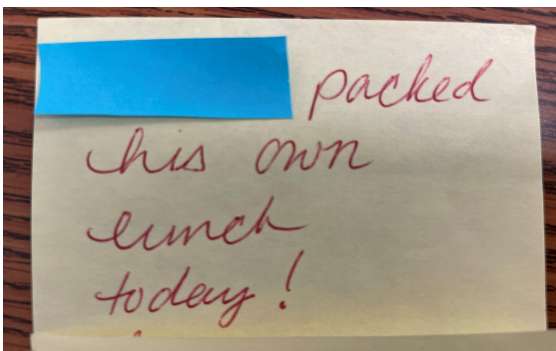 packed
his own
lunch
today!